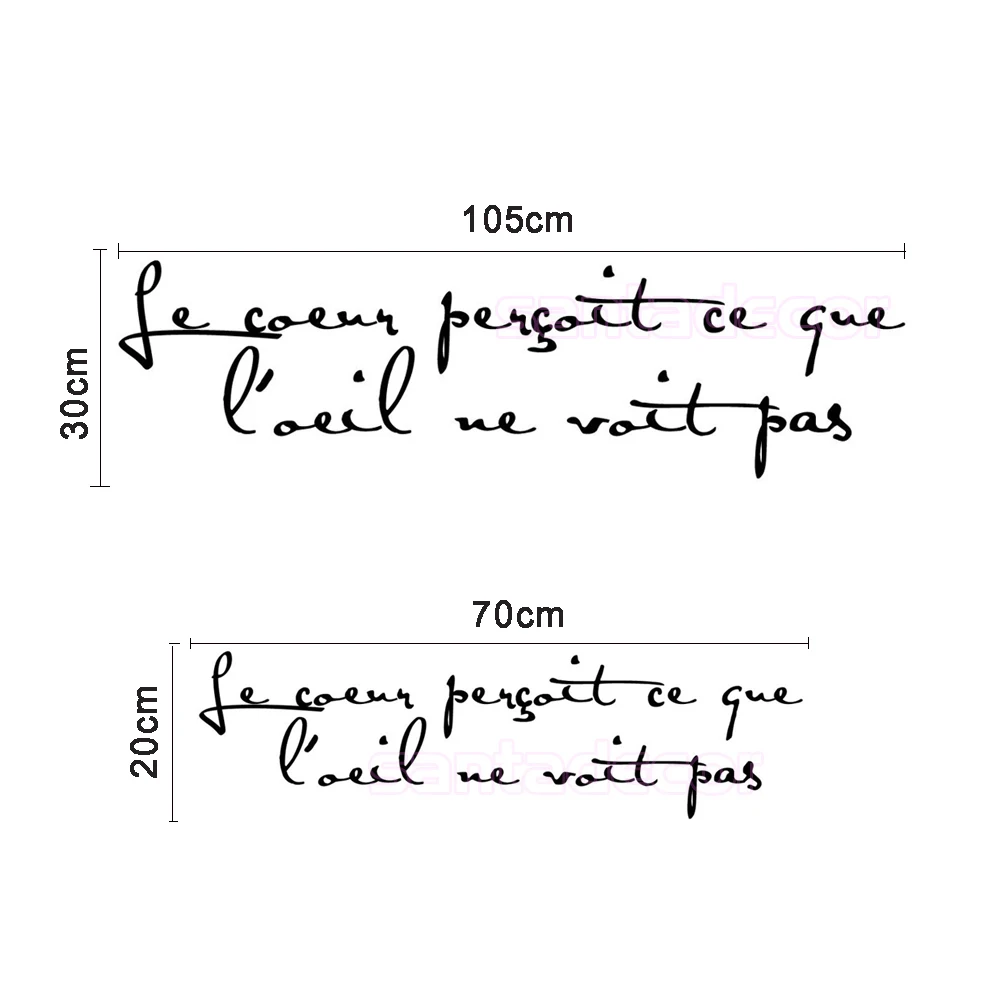 105cm
30cm
Le coeur perçoit ce que
l'oeil ne voit pas
santadecor
70cm
20cm
Le coeur perçoit ce que
l'oeil ne voit pas
santadecor